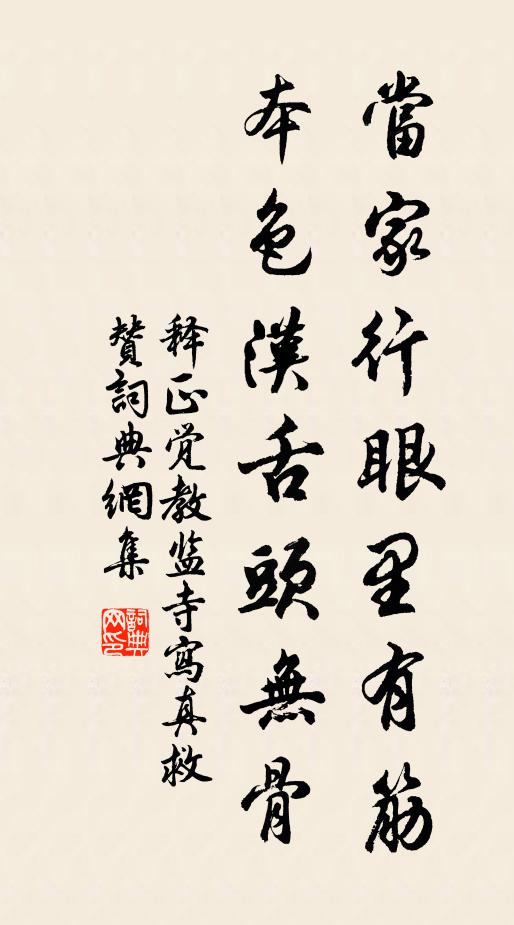 當家行眼里有筋
本色漢舌頭無骨
釋正觉教监寺寫真救
贊詞典網集
詞典網印